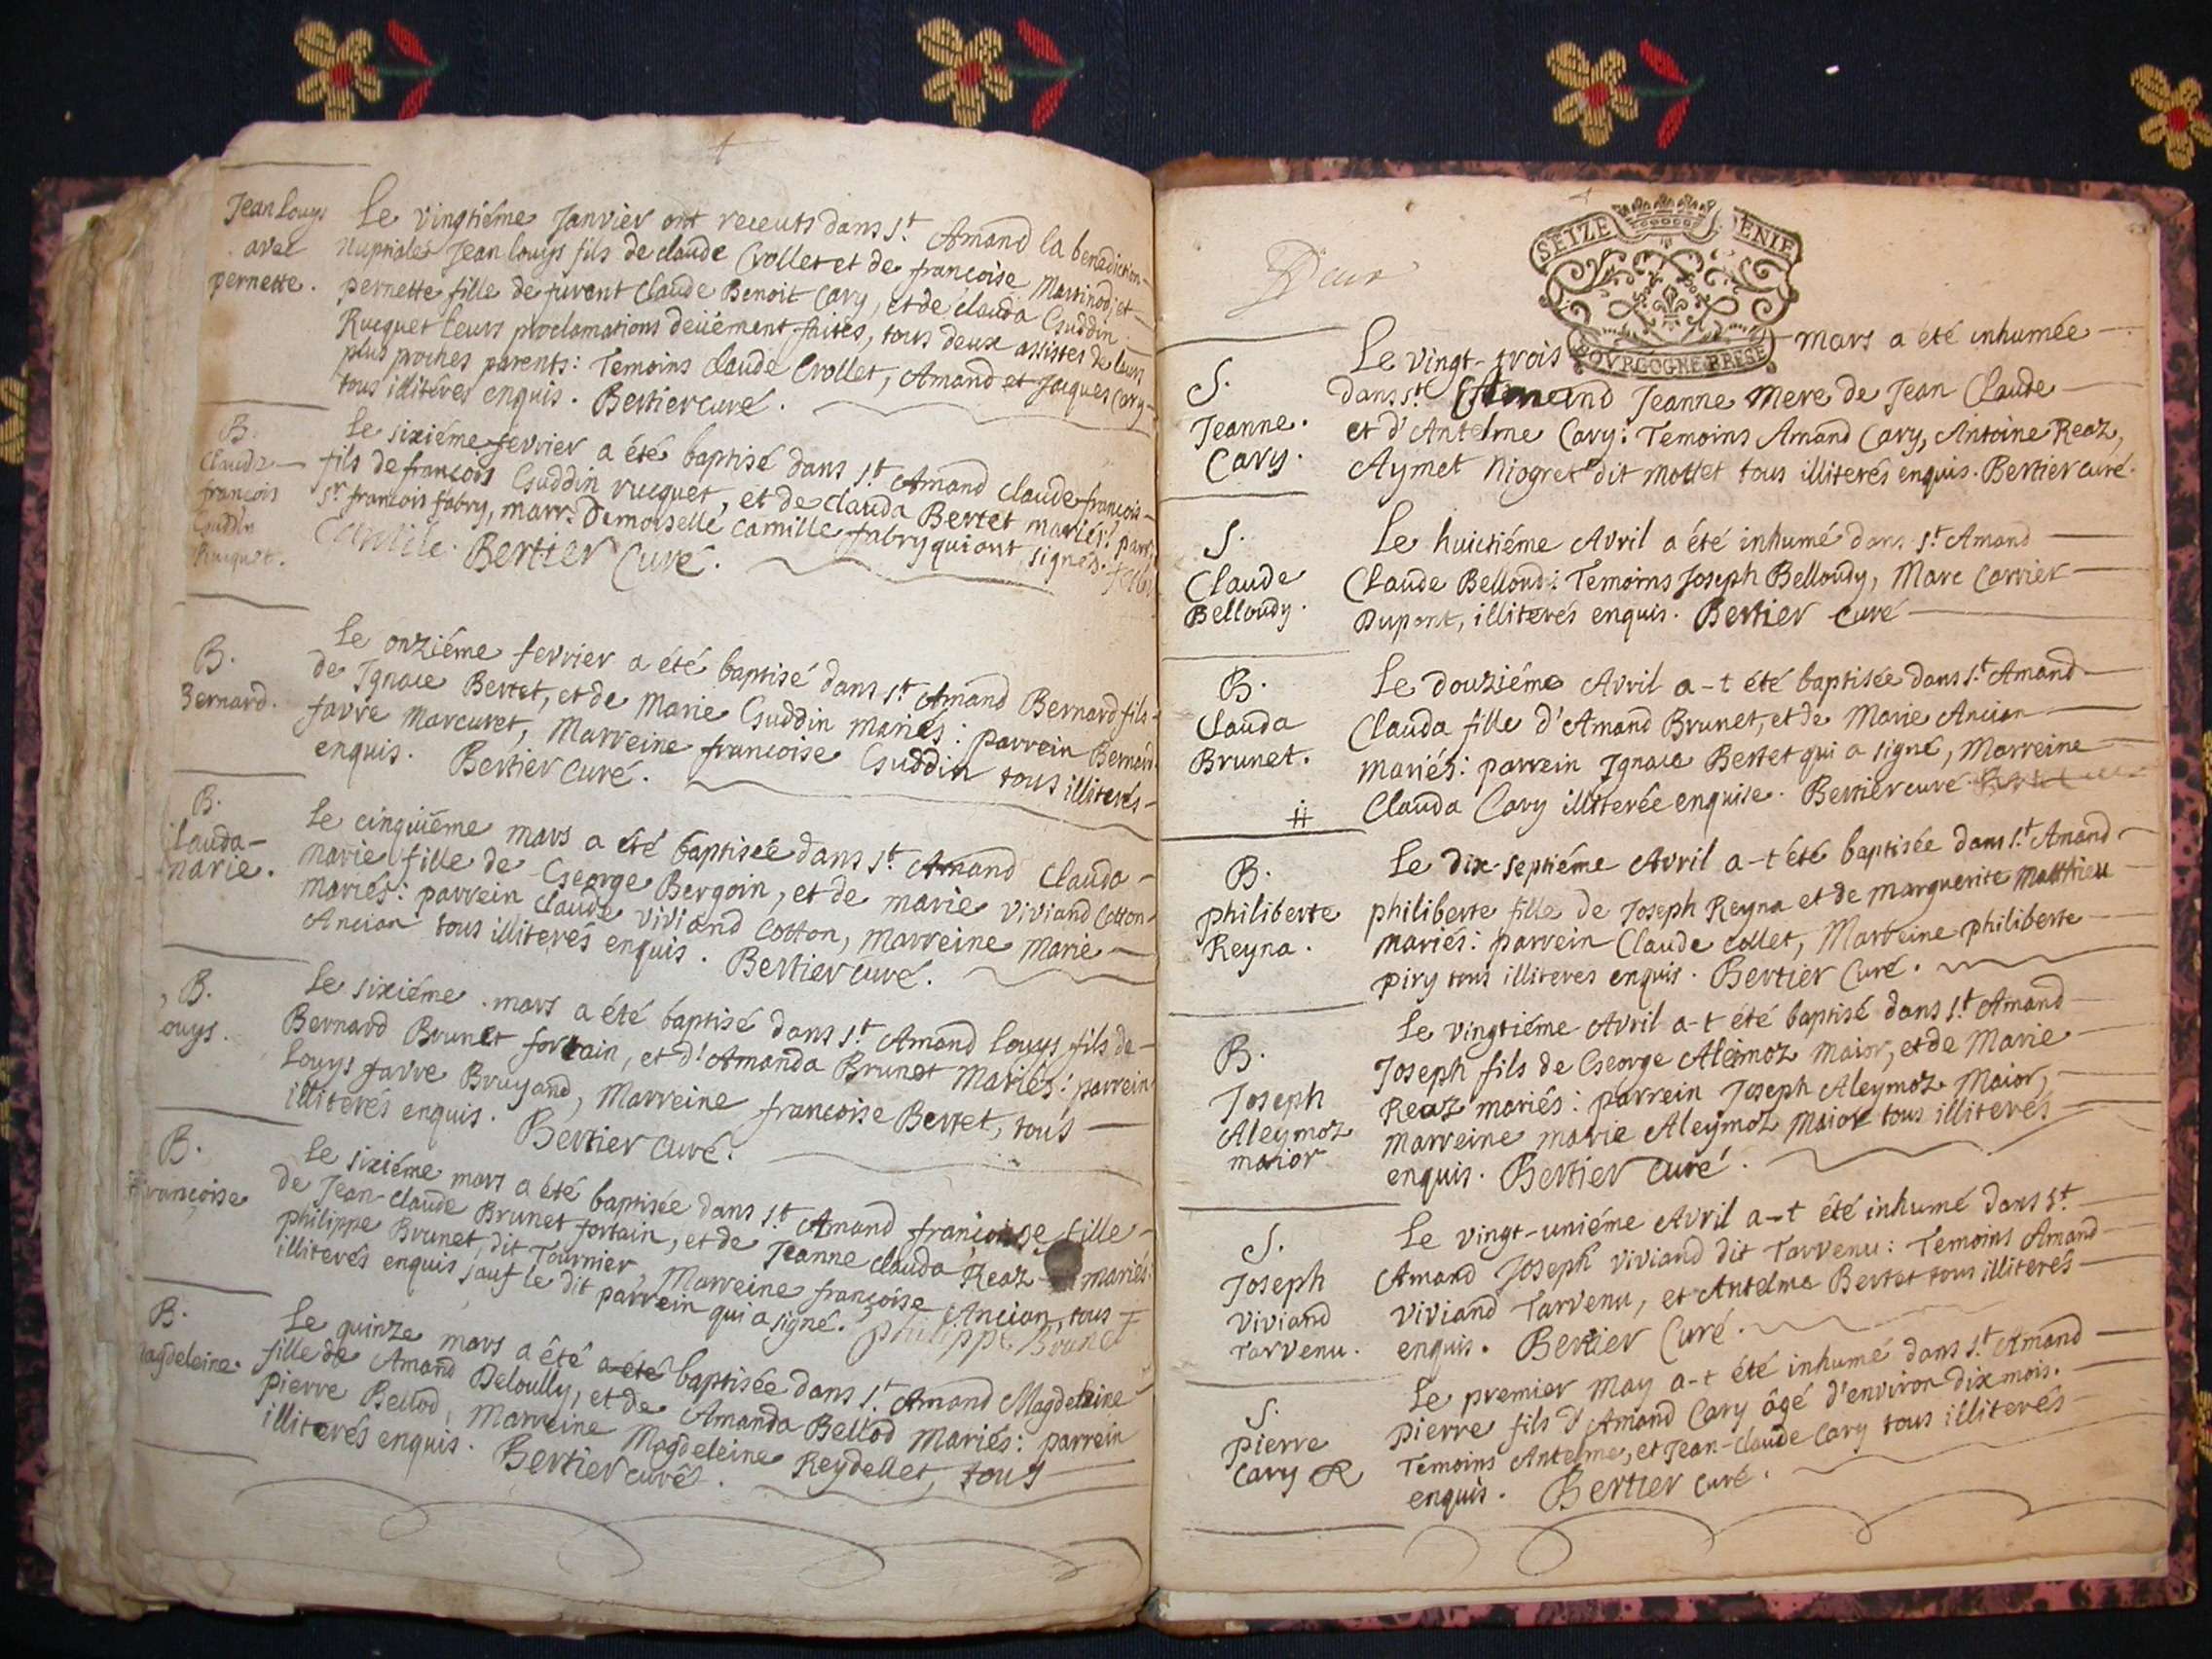 Jean Louys
avec
pernette.
Le vingtiéme Janvier ont receuts dans st. Amand la benediction
nuptiale Jean louys fils de claude Crollet et de francoise Martinod, et
pernette fille de furent Claude Benoit Cary, et de clauda Guddin
Rucquet leurs proclamations deüement faites, tous deux assistes de leurs
plus proches parents: Temoins claude Crollet, Amand et Jacques Cary
tous illiterés enquis. Bertier curé.
B.
Claude
francois
Guddin
Rucquet.
Le sixiéme fevrier a été baptisé dans st. Amand claude francois
fils de francois Guddin rucquet, et de clauda Bertet mariés: parr.
sr. francois fabry, marr. Demoiselle camille fabry qui ont signés.
Camille. Bertier Curé.
B.
Bernard.
Le onziéme fevrier a été baptisé dans st. Amand Bernard fils
de Ignace Bertet, et de Marie Guddin mariés: parrein Bernard
favre Marcuret, Marreine francoise Guddin tous illiterés
enquis. Bertier curé.
B.
Clauda
marie.
Le cinquiéme mars a été baptisée dans st. Amand Clauda
marie fille de George Bergoin, et de marie viviand Cotton
mariés: parrein claude viviand Cotton, Marreine Marie
Ancian tous illiterés enquis. Bertier curé.
B.
ouys.
Le sixiéme mars a été baptisé dans st. Amand Louys fils de
Bernard Brunet fortain, et d'Amanda Brunet Mariés: parrein
Louys favre Bruyand, Marreine francoise Bertet, tous
illiterés enquis. Bertier curé.
B.
francoise
Le sixiéme mars a été baptisée dans st. Amand françoise fille
de Jean-claude Brunet fortain, et de Jeanne clauda Reaz mariés:
philippe Brunet, dit Tournier, Marreine françoise Ancian, tous
illiterés enquis sauf le dit parrein qui a signé. philippe Brunet
B.
Magdeleine.
Le quinze mars a été a été baptisée dans st. Amand Magdeleine
fille de Amand Beloully, et de Amanda Bellod Mariés: parrein
pierre Bellod, Marreine Magdeleine Reydellet, tous
illiterés enquis. Bertier curé.
Deux
SEIZE ENIE
BOURGOGNE BRESE
S.
Jeanne.
Cary.
Le vingt-trois mars a été inhumée
dans st. Amand Jeanne Mere de Jean Claude
et d'Antelme Cary: Temoins Amand Cary, Antoine Reaz,
Aymet Niogret dit Mottet tous illiterés enquis. Bertier curé.
S.
Claude
Belloudy.
Le huictiéme Avril a été inhumé dans st. Amand
Claude Belloudi: Temoins Joseph Belloudy, Marc Carrier
Dupont, illiterés enquis. Bertier curé
B.
Clauda
Brunet.
Le douziéme Avril a-t été baptisée dans st. Amand
Clauda fille d'Amand Brunet, et de Marie Ancian
mariés: parrein Ignace Bertet qui a signé, Marreine
Clauda Cary illiterée enquise. Bertier curé
B.
philiberte
Reyna.
Le dix-septiéme Avril a-t été baptisée dans st. Amand
philiberte fille de Joseph Reyna et de Marguerite Matthieu
mariés: parrein Claude collet, Marreine philiberte
piry tous illiteres enquis. Bertier Curé.
B.
Joseph
Aleymoz
maior
Le vingtiéme Avril a-t été baptisé dans st. Amand
Joseph fils de George Aleimoz Maior, et de Marie
Reaz mariés: parrein Joseph Aleymoz Maior,
Marreine marie Aleymoz Maior tous illiterés
enquis. Bertier curé.
S.
Joseph
Viviand
Tarvenu.
Le vingt-uniéme Avril a-t été inhumé dans st.
Amand Joseph viviand dit Tarvenu: Temoins Amand
Viviand Tarvenu, et Antelme Bertet tous illiterés
enquis. Bertier Curé.
S.
Pierre
Cary
Le premier May a-t été inhumé dans st. Amand
pierre fils d'Amand Cary âgé d'environ dix mois.
Temoins Antelme, et Jean-claude Cary tous illiterés
enquis. Bertier curé.